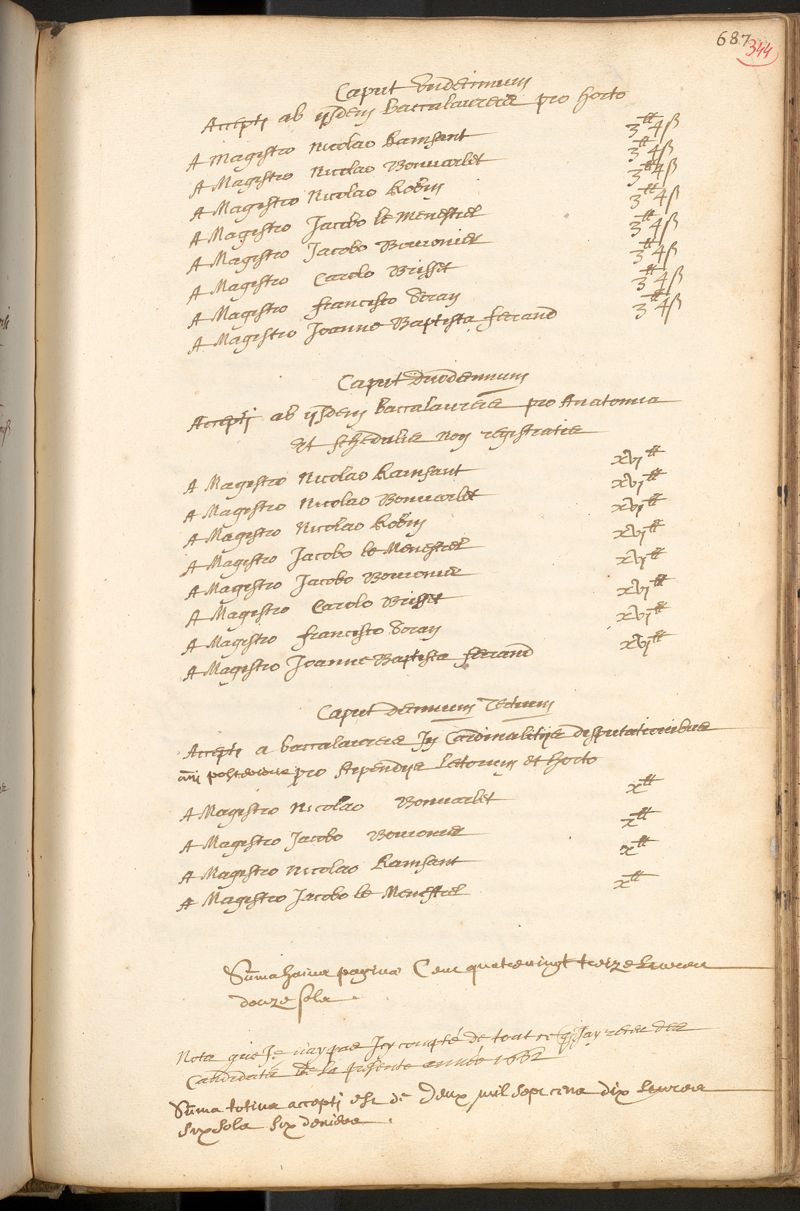 687
344
Caput Undecimum
Accepti ab ijsdem Baccalaureis pro horto
A Magistro Nicolao Ramsant 3tt 4ß
A Magistro Nicolao Bonvarlet 3tt 4ß
A Magistro Nicolao Robin 3tt 4ß
A Magistro Jacobo le Menestrel 3tt 4ß
A Magistro Jacobo 3tt 4ß
A Magistro Carolo Brisset 3tt 4ß
A Magistro Francisco 3tt 4ß
A Magistro Joanne Baptista Ferrand 3tt 4ß
Caput Duodecimum
Accepti ab ijsdem Baccalaureis pro Anatomia
et schedulis non registratis
A Magistro Nicolao Ramsant xvjtt
A Magistro Nicolao Bonvarlet xvjtt
A Magistro Nicolao Robin xvjtt
A Magistro Jacobo le Menestrel xvjtt
A Magistro Jacobo xvjtt
A Magistro Carolo Brisset xvjtt
A Magistro Francisco xvjtt
A Magistro Joanne Baptista Ferrand xvjtt
Caput Decimum Tertium
Accepti a baccalaureis in Cardinalitijs disputationibus
anni posterioris pro stipendijs lectorum et horto
A Magistro Nicolao Bonvarlet xtt
A Magistro Jacobo xtt
A Magistro Nicolao Ramsant xtt
A Magistro Jacobo le Menestrel xtt
Suma huius pagina Cent quatrevingt treize Livres
douze sols.
Nota que Je n'ay pas Icy compté de tout ce q Jay receu des
Candidats de la presente année 1662
Suma totius accepti est de Deux mil sept cens dix Livres
six sols six deniers.